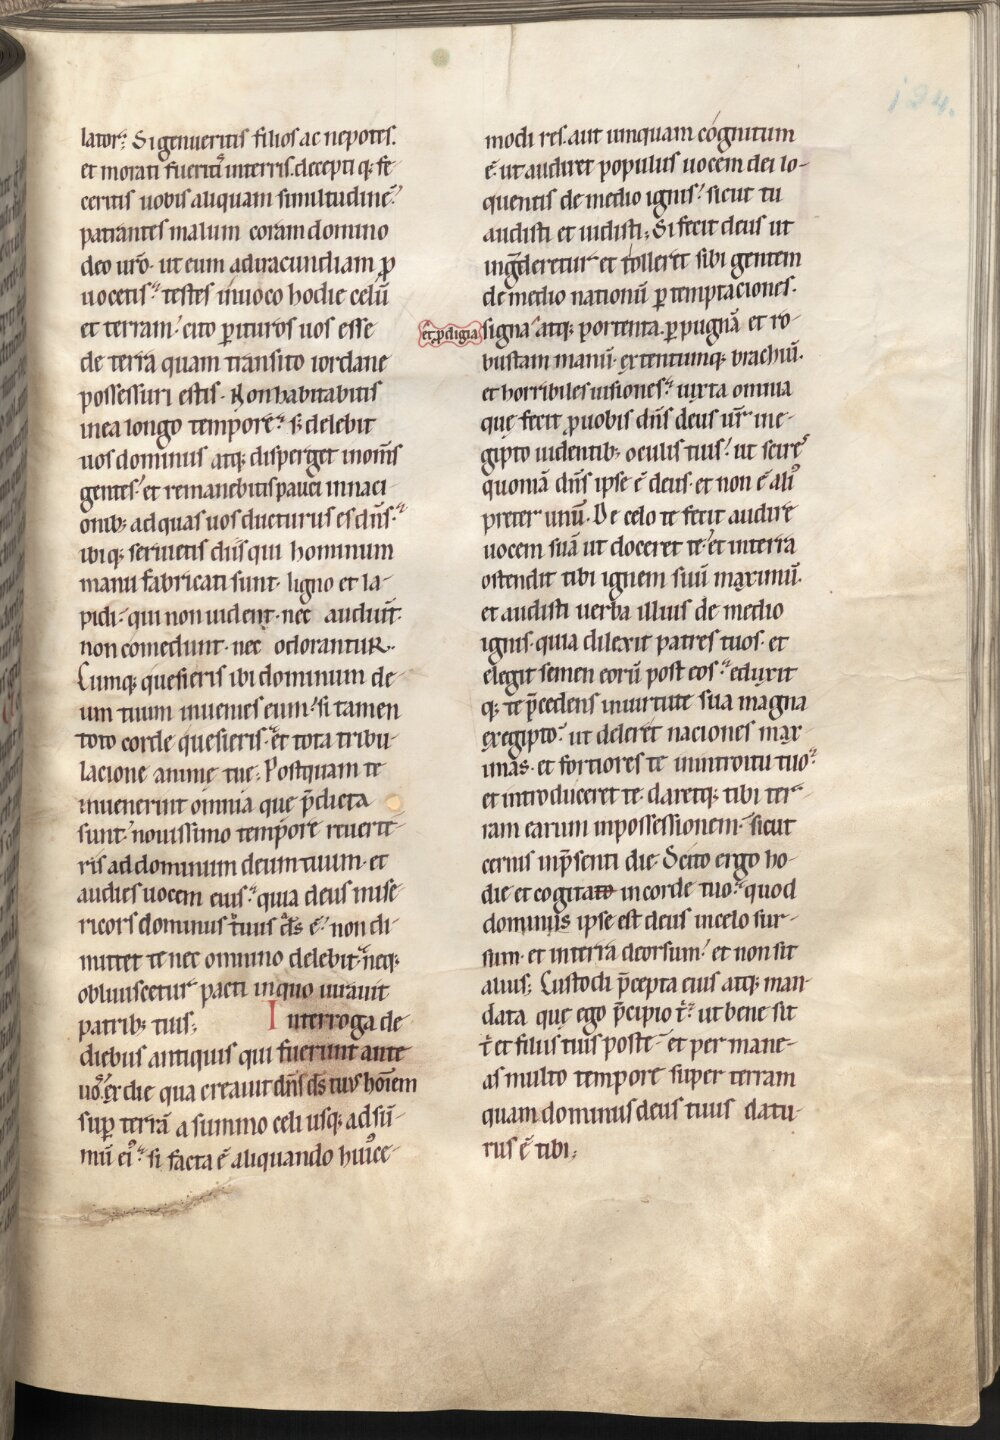 134.
lator; Si genueritis filios ac nepotes.
et morati fuerit᷒ in terris. decepti q; fe-
ceritis uobis aliquam similitudinē.
patrantes malum coram domino
deo ur̄o. ut eum ad iracundiam ꝓ
uocetis. testes inuoco hodie celū
et terram. cito ꝑituros uos esse
de terra quam transito iordane
possessuri estis. Non habitabitis
in ea longo tempore. s; delebit
uos dominus atq; disperget in om̄s
gentes. et remanebitis pauci in naci-
onib; ad quas uos ducturus es dn̄s.
ibi q; seruietis diis qui hominum
manu fabricati sunt. ligno et la-
pidi. qui non uident. nec audiun̄t.
non comedunt. nec odorantur.
Cumq; quesieris ibi dominum de-
um tuum inuenies eum. si tamen
toto corde quesieris. et tota tribu-
lacione anime tue; Postquam te
inuenerint omnia que p̄dicta
sunt. nouissimo tempore reuerte-
ris ad dominum deum tuum. et
audies uocem eius. quia deus mise-
ricors dominus tuus ds̄ ē. non di-
mittet te nec omnino delebit. neq;
obliuiscetur pacti in quo iurauit
patrib; tuis; Interroga de
diebus antiquis qui fuerunt ante
uos. ex die qua creauit dn̄s ds̄ tuus hoīem
suꝑ terrā a summo celi usq; ad sū-
mū ei᷒. si facta ē aliquando hui᷒ce-
modi res. aut umquam cognitum
ē. ut audiret populus uocem dei lo-
quentis de medio ignis. sicut tu
audisti et uidisti; Si fecit deus ut
ingrederetur et tolleret sibi gentem
de medio nationū ꝑ temptaciones.
et ꝓdigia
signa atq; portenta. ꝑ pugnā et ro-
bustam manū. extentumq; brachiū.
et horribiles uisiones. iuxta omnia
que fecit ꝓ uobis dn̄s deus ur̄ in e-
gipto uidentib; oculis tuis. ut scires
quoniā dn̄s ipse ē deus. et non ē ali᷒
preter unū. De celo te fecit audire
uocem suā ut doceret te. et in terra
ostendit tibi ignem suū maximū.
et audisti uerba illius de medio
ignis. quia dilexit patres tuos. et
elegit semen eorū post eos. eduxit
q; te p̄cedens in uirtute sua magna
ex egipto. ut deleret naciones max-
imas. et fortiores te in introitu tuo.
et introduceret te. daretq; tibi ter-
ram earum in possessionem. sicut
cernis in p̄senti die. Scito ergo ho-
die et cogitato in corde tuo. quod
dominus ipse est deus in celo sur-
sum. et in terra deorsum. et non sit
alius; Custodi p̄cepta eius atq; man-
data que ego p̄cipio t̄. ut bene sit
t̄ et filiis tuis post te. et per mane-
as multo tempore super terram
quam dominus deus tuus datu-
rus ē tibi;